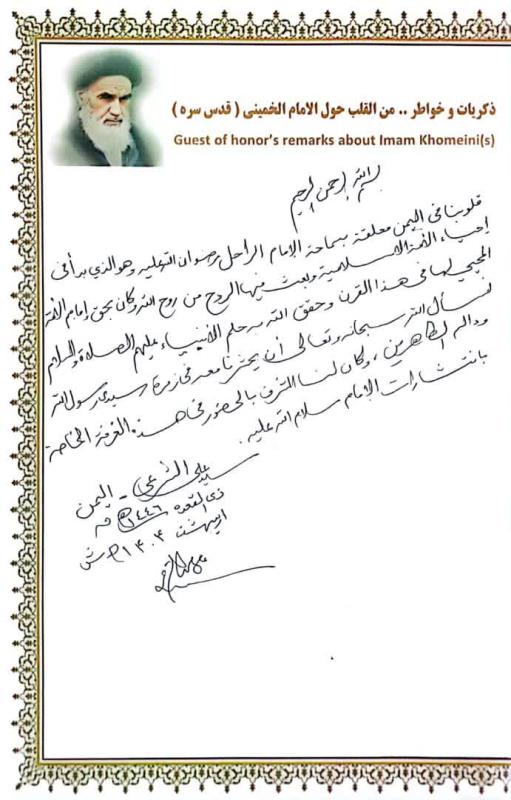 ذكريات و خواطر .. من القلب حول الامام الخميني ( قدس سره )
Guest of honor's remarks about Imam Khomeini(s)
بسم الله الرحمن الرحيم
قلوبنا في اليمن معلقة بسماحة الامام الراحل رضوان الله عليه وهو الذي بدأ في
إحياء الأمة الاسلامية وبعث فيها الروح من روح الله وكان بحق إمام الأمة
المحيي لها في هذا القرن وحقق الله به حلم الأنبياء عليهم الصلاة والسلام
نسأل الله سبحانه وتعالى أن يحشرنا معه في زمرة سيدنا رسول الله
وداله الطاهرين ، وكان لنا الشرف بالحضور في هذه الغرفة الخاصة
بانتشارات الامام سلام الله عليه .
سيد علي الشرعي - اليمن
ذي القعدة ١٤٤٦ه ق
اردیبهشت ١٤٠٤ ه ش